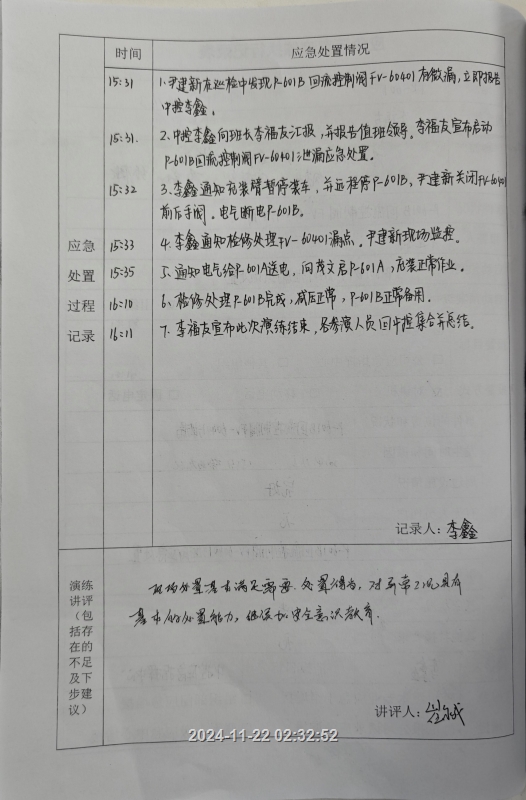 时间 应急处置情况
15:31 1. 尹建新在巡检中发现P-601B回流控制阀FV-60401有微漏，立即报告
中控李鑫。
15:31. 2. 中控李鑫向班长李福友汇报，并报告值班领导。李福友宣布启动
P-601B回流控制阀FV-60401泄漏应急处置。
15:32 3. 李鑫通知充装臂暂停装车，并远程停P-601B，尹建新关闭FV-60401
前后手阀。电气断电P-601B。
15:33 4. 李鑫通知检修处理FV-60401漏点。尹建新现场监控。
15:35 5. 通知电气给P-601A送电，向茂文启P-601A，充装正常作业。
16:10 6. 检修处理P-601B完成，试后正常，P-601B正常备用。
16:11 7. 李福友宣布此次演练结束，各参演人员回中控集合并总结。
应急
处置
过程
记录
记录人：李鑫
演练
讲评
（包
括存
在的
不足
及下
步建
议）
现场处置基本满足需要、处置得当，对异常工况具有
基本的处置能力，继续加安全意识教育.
讲评人：
2024-11-22 02:32:52